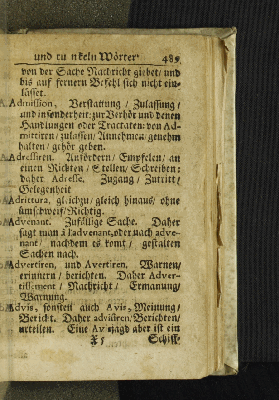 und tunkeln Wörter. 489
von der Sache Nachricht giebet/ und
bis auf fernern Befehl sich nicht ein-
lässet.
Admission, Verstattung / Zulassung /
und insonderheit: zur Verhör und denen
Handlungen oder Tractaten: von Ad-
mittiren/ zulassen/ Annehmen genehm
halten/ gehör geben.
Adressiren. Anfördern/ Empfelen/ an
einen Richten / Stellen/ Schreiben:
daher Adresse. Zugang / Zutritt/
Gelegenheit
Adrittura, gleichzu/ gleich hinaus/ ohne
umschweif/Richtig.
Advenant. Zufällige Sache. Daher
sagt man à l'advenant, oder nach adve-
nant/ nachdem es komt/ gestalten
Sachen nach.
Advertiren, und Avertiren, Warnen/
erinnern/ berichten. Daher Adver-
tissement / Nachricht / Ermanung/
Warnung.
Advis, sonsten auch Avis, Meinung/
Bericht. Daher adviüren/Berichten/
urteilen. Eine Avisjagd aber ist ein
X 5 Schiff-